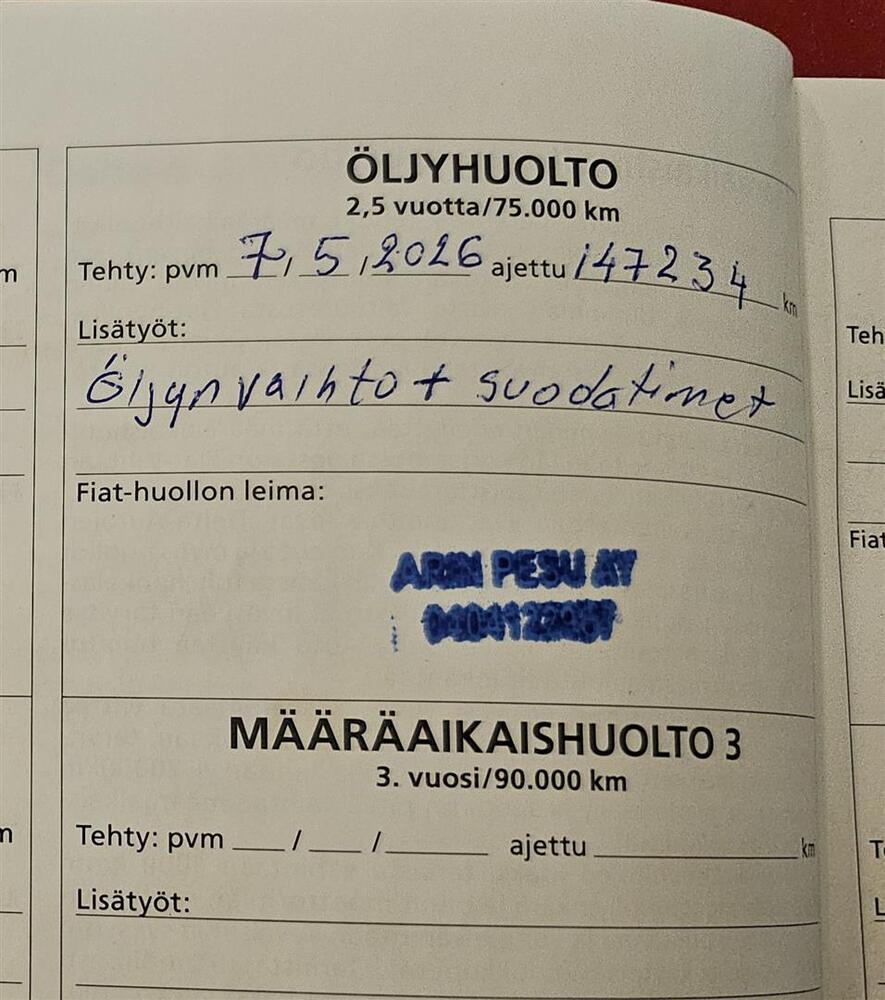 ÖLJYHUOLTO
2,5 vuotta/75.000 km
Tehty: pvm 7 / 5 / 2026 ajettu 147234 km
Lisätyöt:
Öljynvaihto + suodatimet
Fiat-huollon leima:
ARIN PESU AY
MÄÄRÄAIKAISHUOLTO 3
3. vuosi/90.000 km
Tehty: pvm ___ / ___ / ______ ajettu ____________ km
Lisätyöt:
m
m
Teh
Lisä
Fiat
T
L